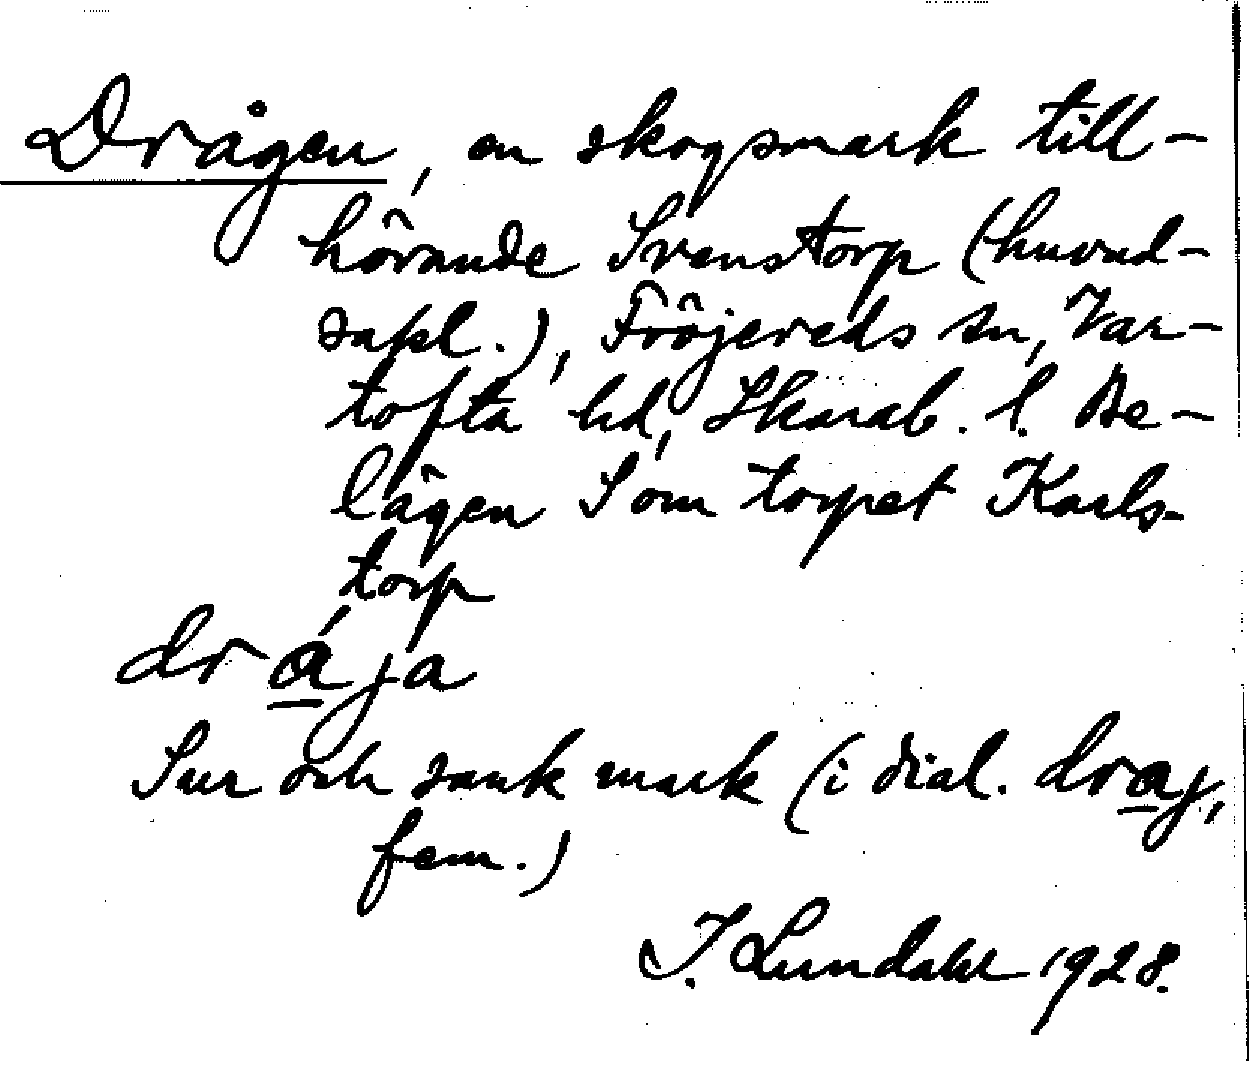 Drågen, en skogsmark till-
hörande Svenstorp (huvud-
sakl.), Fröjereds sn, Var-
tofta hd, Skarab. l. Be-
lägen S om torpet Karls-
torp
dråja
Sur och sank mark (i dial. draj,
fem.)
I. Lundahl 1928.